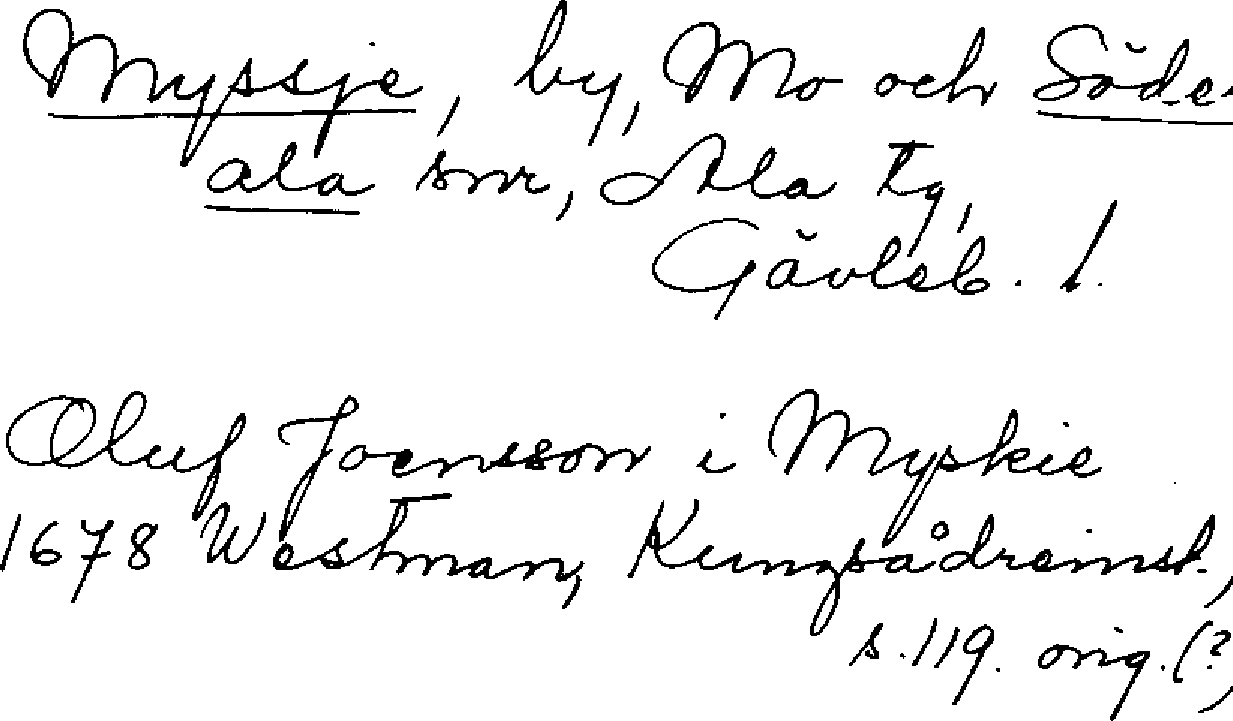 Myssje, by, Mo och Söder
ala snr, Ala tg,
Gävleb. l.
Oluf Joensson i Myskie
1678 Westman, Kungsådreinst.,
s. 119. orig. (?)